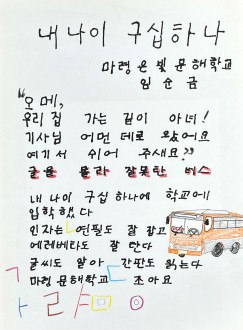 내 나이 구십하나
마령은빛문해학교
임순금
"오메,
우리 집 가는 길이 아녀!
기사님 어먼 데로 왔어요
여기서 쉬어 주새요?"
글을 몰라 잘못탄 버스
내 나이 구십 하나에 학교에
입학했다
인자는 연필도 잘 잡고
에레베타도 잘 탄다
글씨도 알아 간판도 읽는다
마령 문해학교 조아요
ㄱ ㄴ ㄷ
ㅏ ㄹ ㅑ ㅁ ㅇ